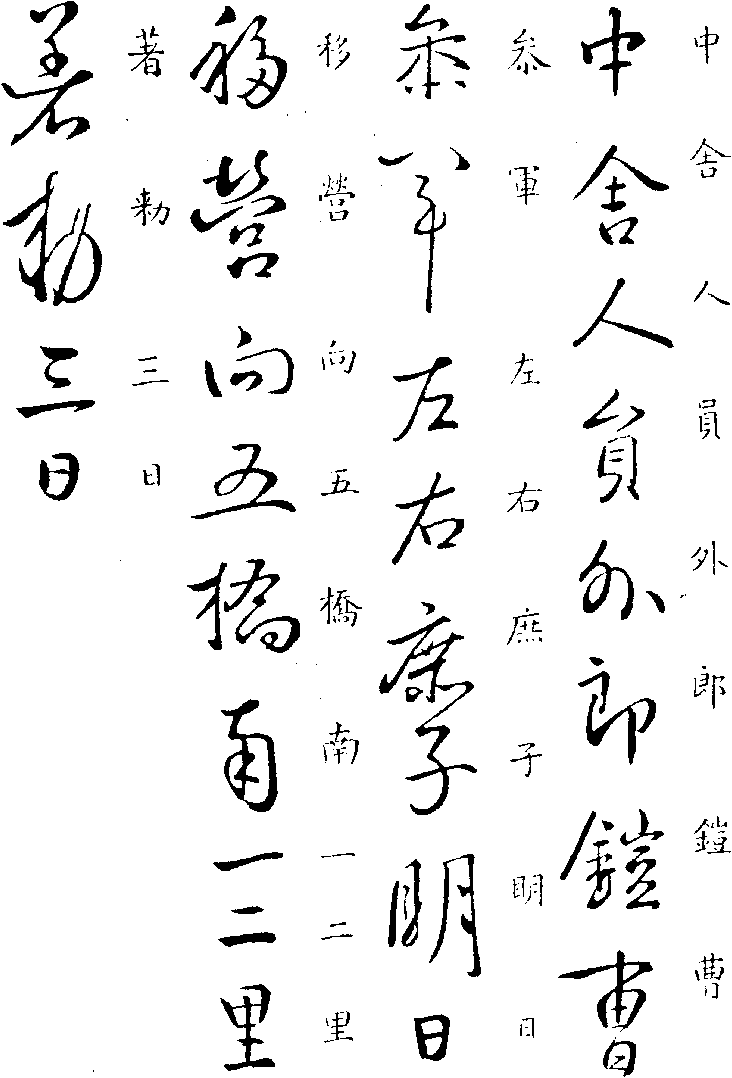 中舍人員外郎鎧曹
中舍人員外郎鎧曹
叅軍左右庶子明日
叅軍左右庶子明日
移營向五橋南一二里
移營向五橋南一二里
著勅三日
著勅三日